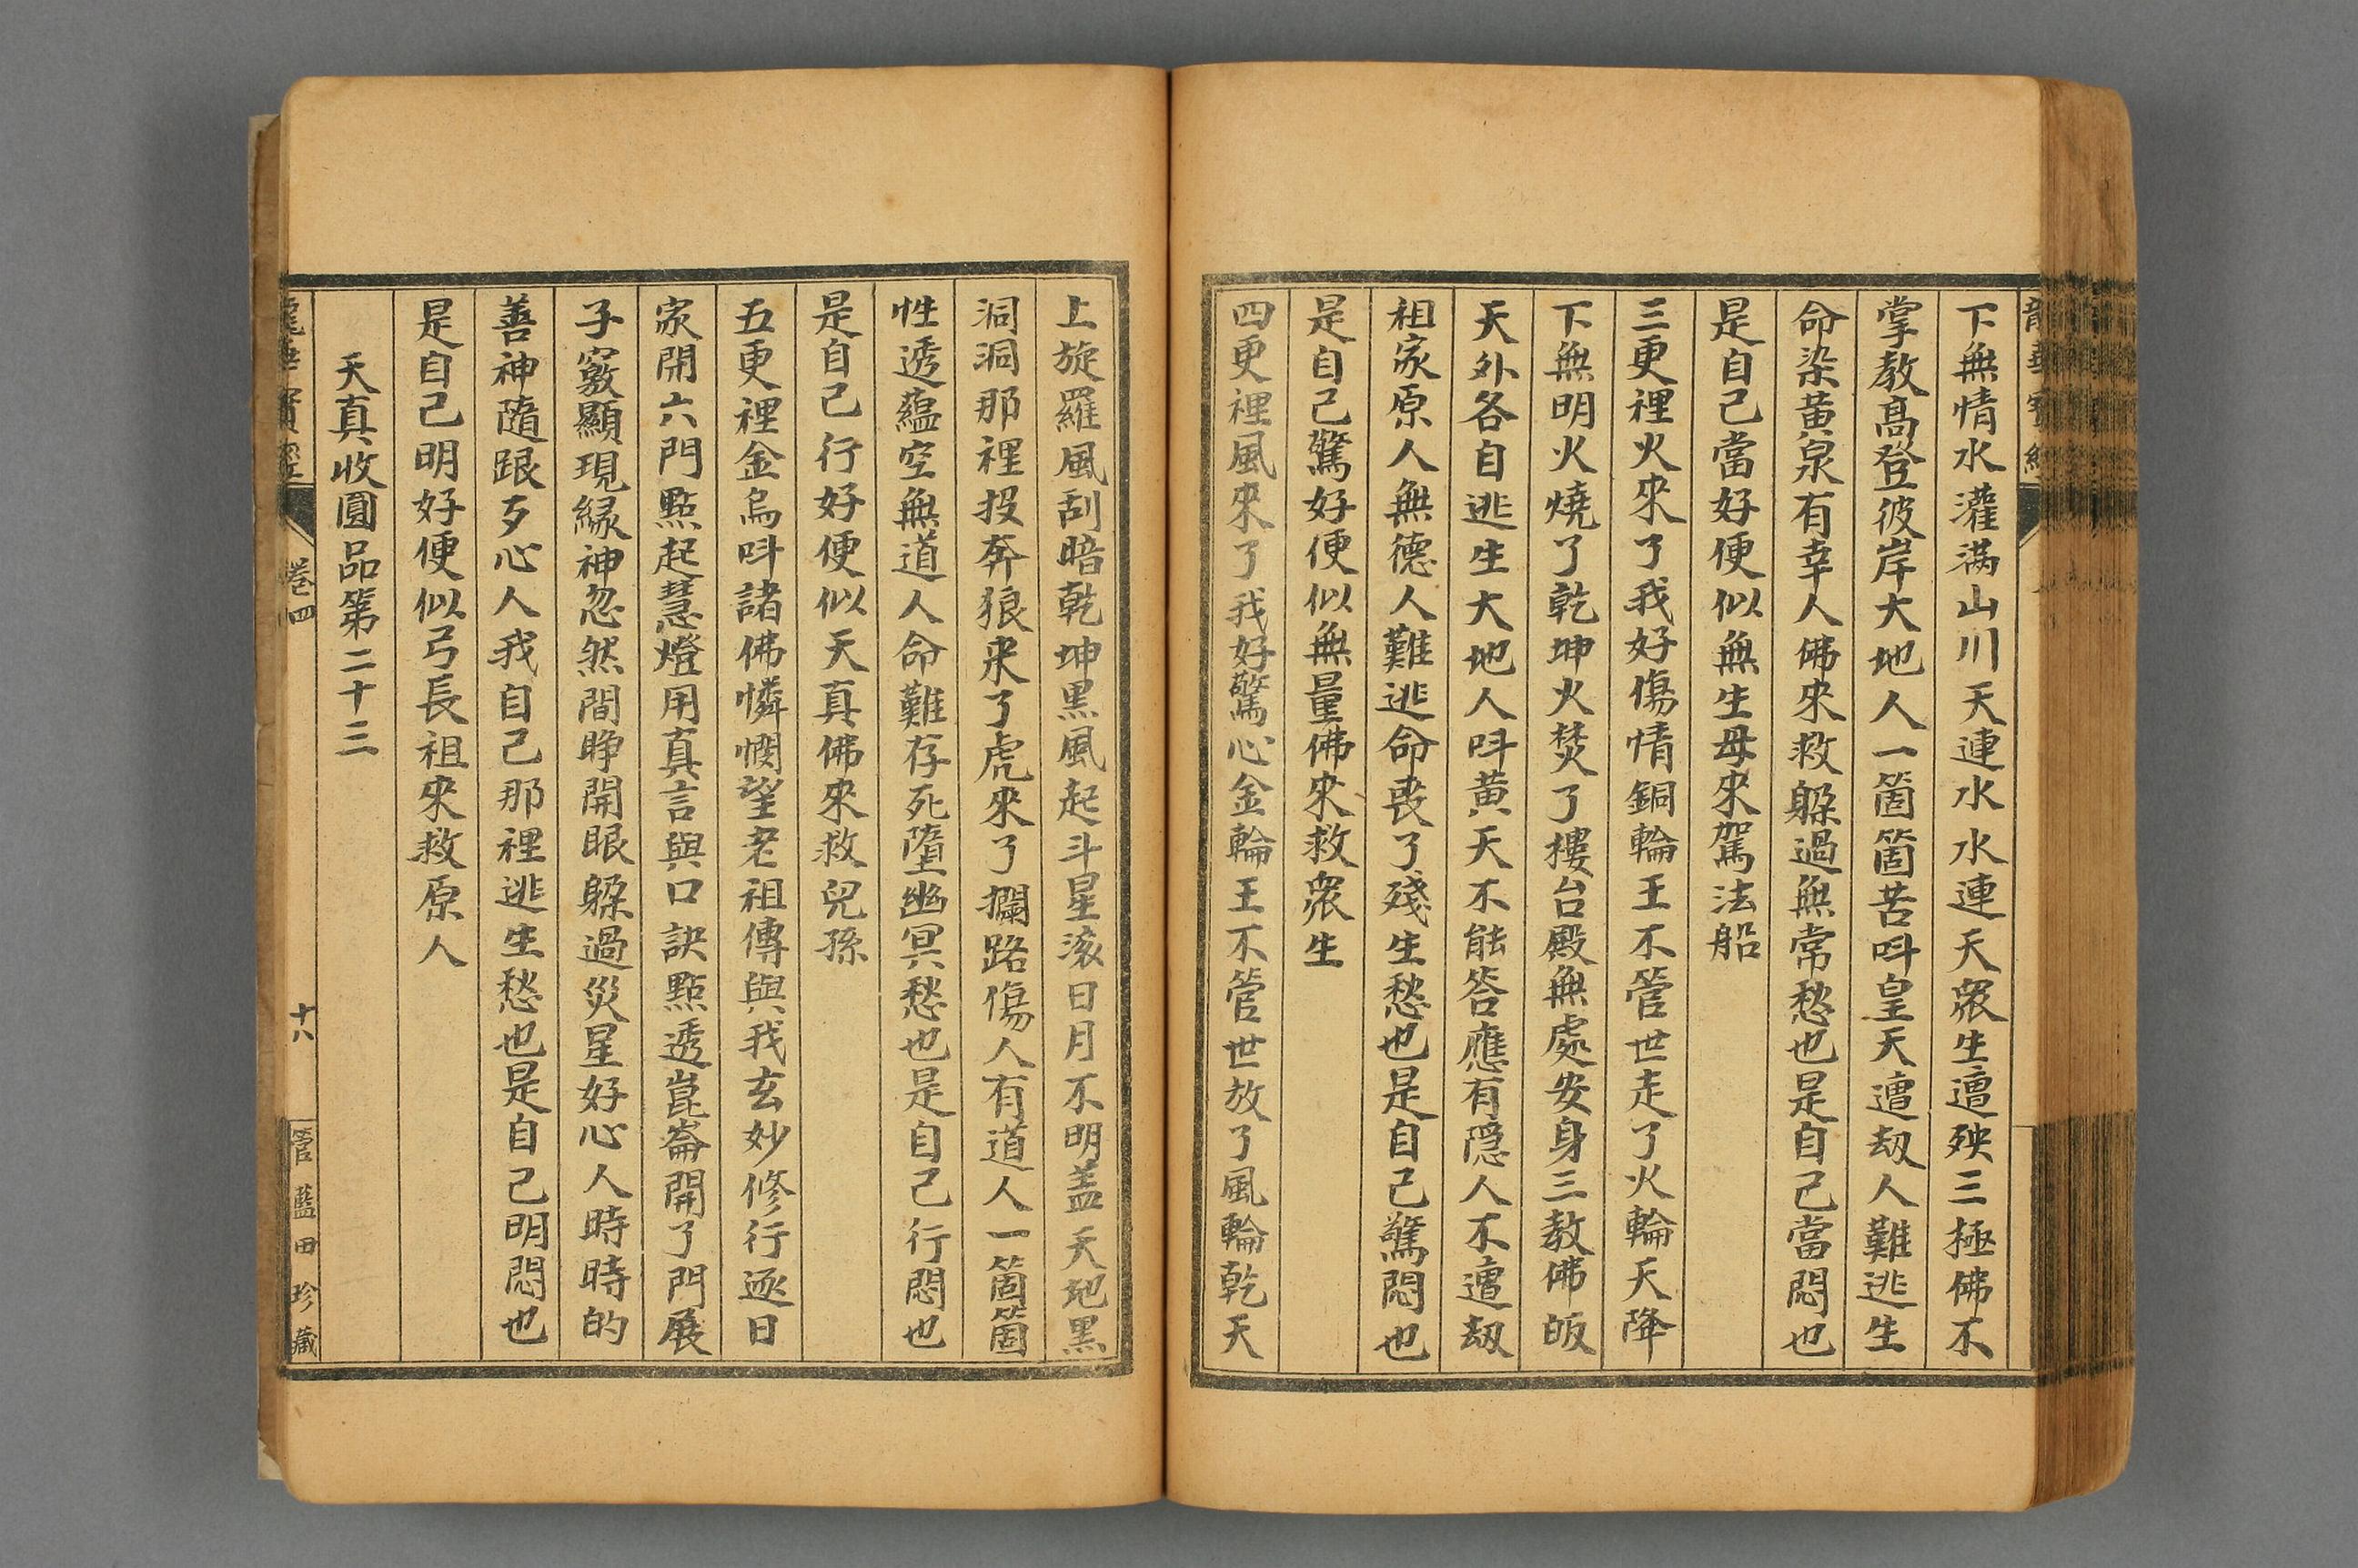 龍華寶經
下無情水灌滿山川天連水水連天衆生遭殃三極佛不
掌教高登彼岸大地人一箇箇苦呌皇天遭刼人難逃生
命染黃泉有幸人佛來救躱過無常愁也是自己當悶也
是自己當好便似無生母來駕法船
三更裡火來了我好傷情銅輪王不管世走了火輪天降
下無明火燒了乾坤火焚了樓台殿無處安身三教佛皈
天外各自逃生大地人呌黃天不能答應有隱人不遭刼
祖家原人無德人難逃命喪了殘生愁也是自己驚悶也
是自己驚好便似無量佛來救衆生
四更裡風來了我好驚心金輪王不管世放了風輪乾天
上旋羅風刮暗乾坤黑風起斗星滚日月不明盖天地黑
洞洞那裡投奔狼來了虎來了攔路傷人有道人一箇箇
性透蘊空無道人命難存死墮幽冥愁也是自己行悶也
是自己行好便似天真佛來救兒孫
五更裡金烏呌諸佛憐憫望老祖傳與我玄妙修行逐日
家開六門點起慧燈用真言與口訣點透崑崙開了門展
子竅顯現緣神忽然間睁開眼躱過災星好心人時時的
善神隨跟歹心人我自己那裡逃生愁也是自己明悶也
是自己明好便似弓長祖來救原人
天真收圓品第二十三
龍華寶經 卷四 十八 管藍田珍藏